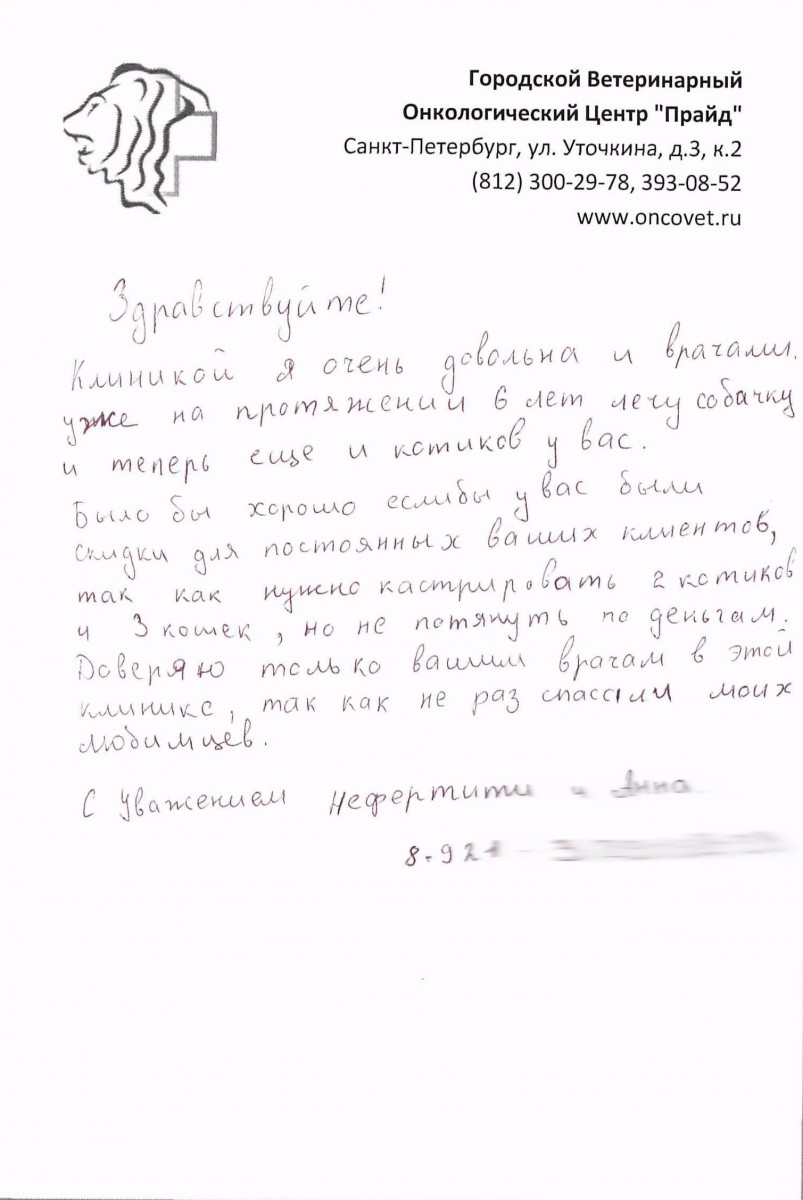 Городской Ветеринарный
Онкологический Центр "Прайд"
Санкт-Петербург, ул. Уточкина, д.3, к.2
(812) 300-29-78, 393-08-52
www.oncovet.ru
Здравствуйте!
Клиникой я очень довольна и врачами.
уже на протяжении 6 лет лечу собачку
и теперь еще и котиков у вас.
Было бы хорошо еслибы у вас были
скидки для постоянных ваших клиентов,
так как нужно кастрировать 2 котиков
и 3 кошек, но не потянуть по деньгам.
Доверяю только вашим врачам в этой
клинике, так как не раз спассли моих
любимцев.
С Уважением Нефертити и Анна
8-921-